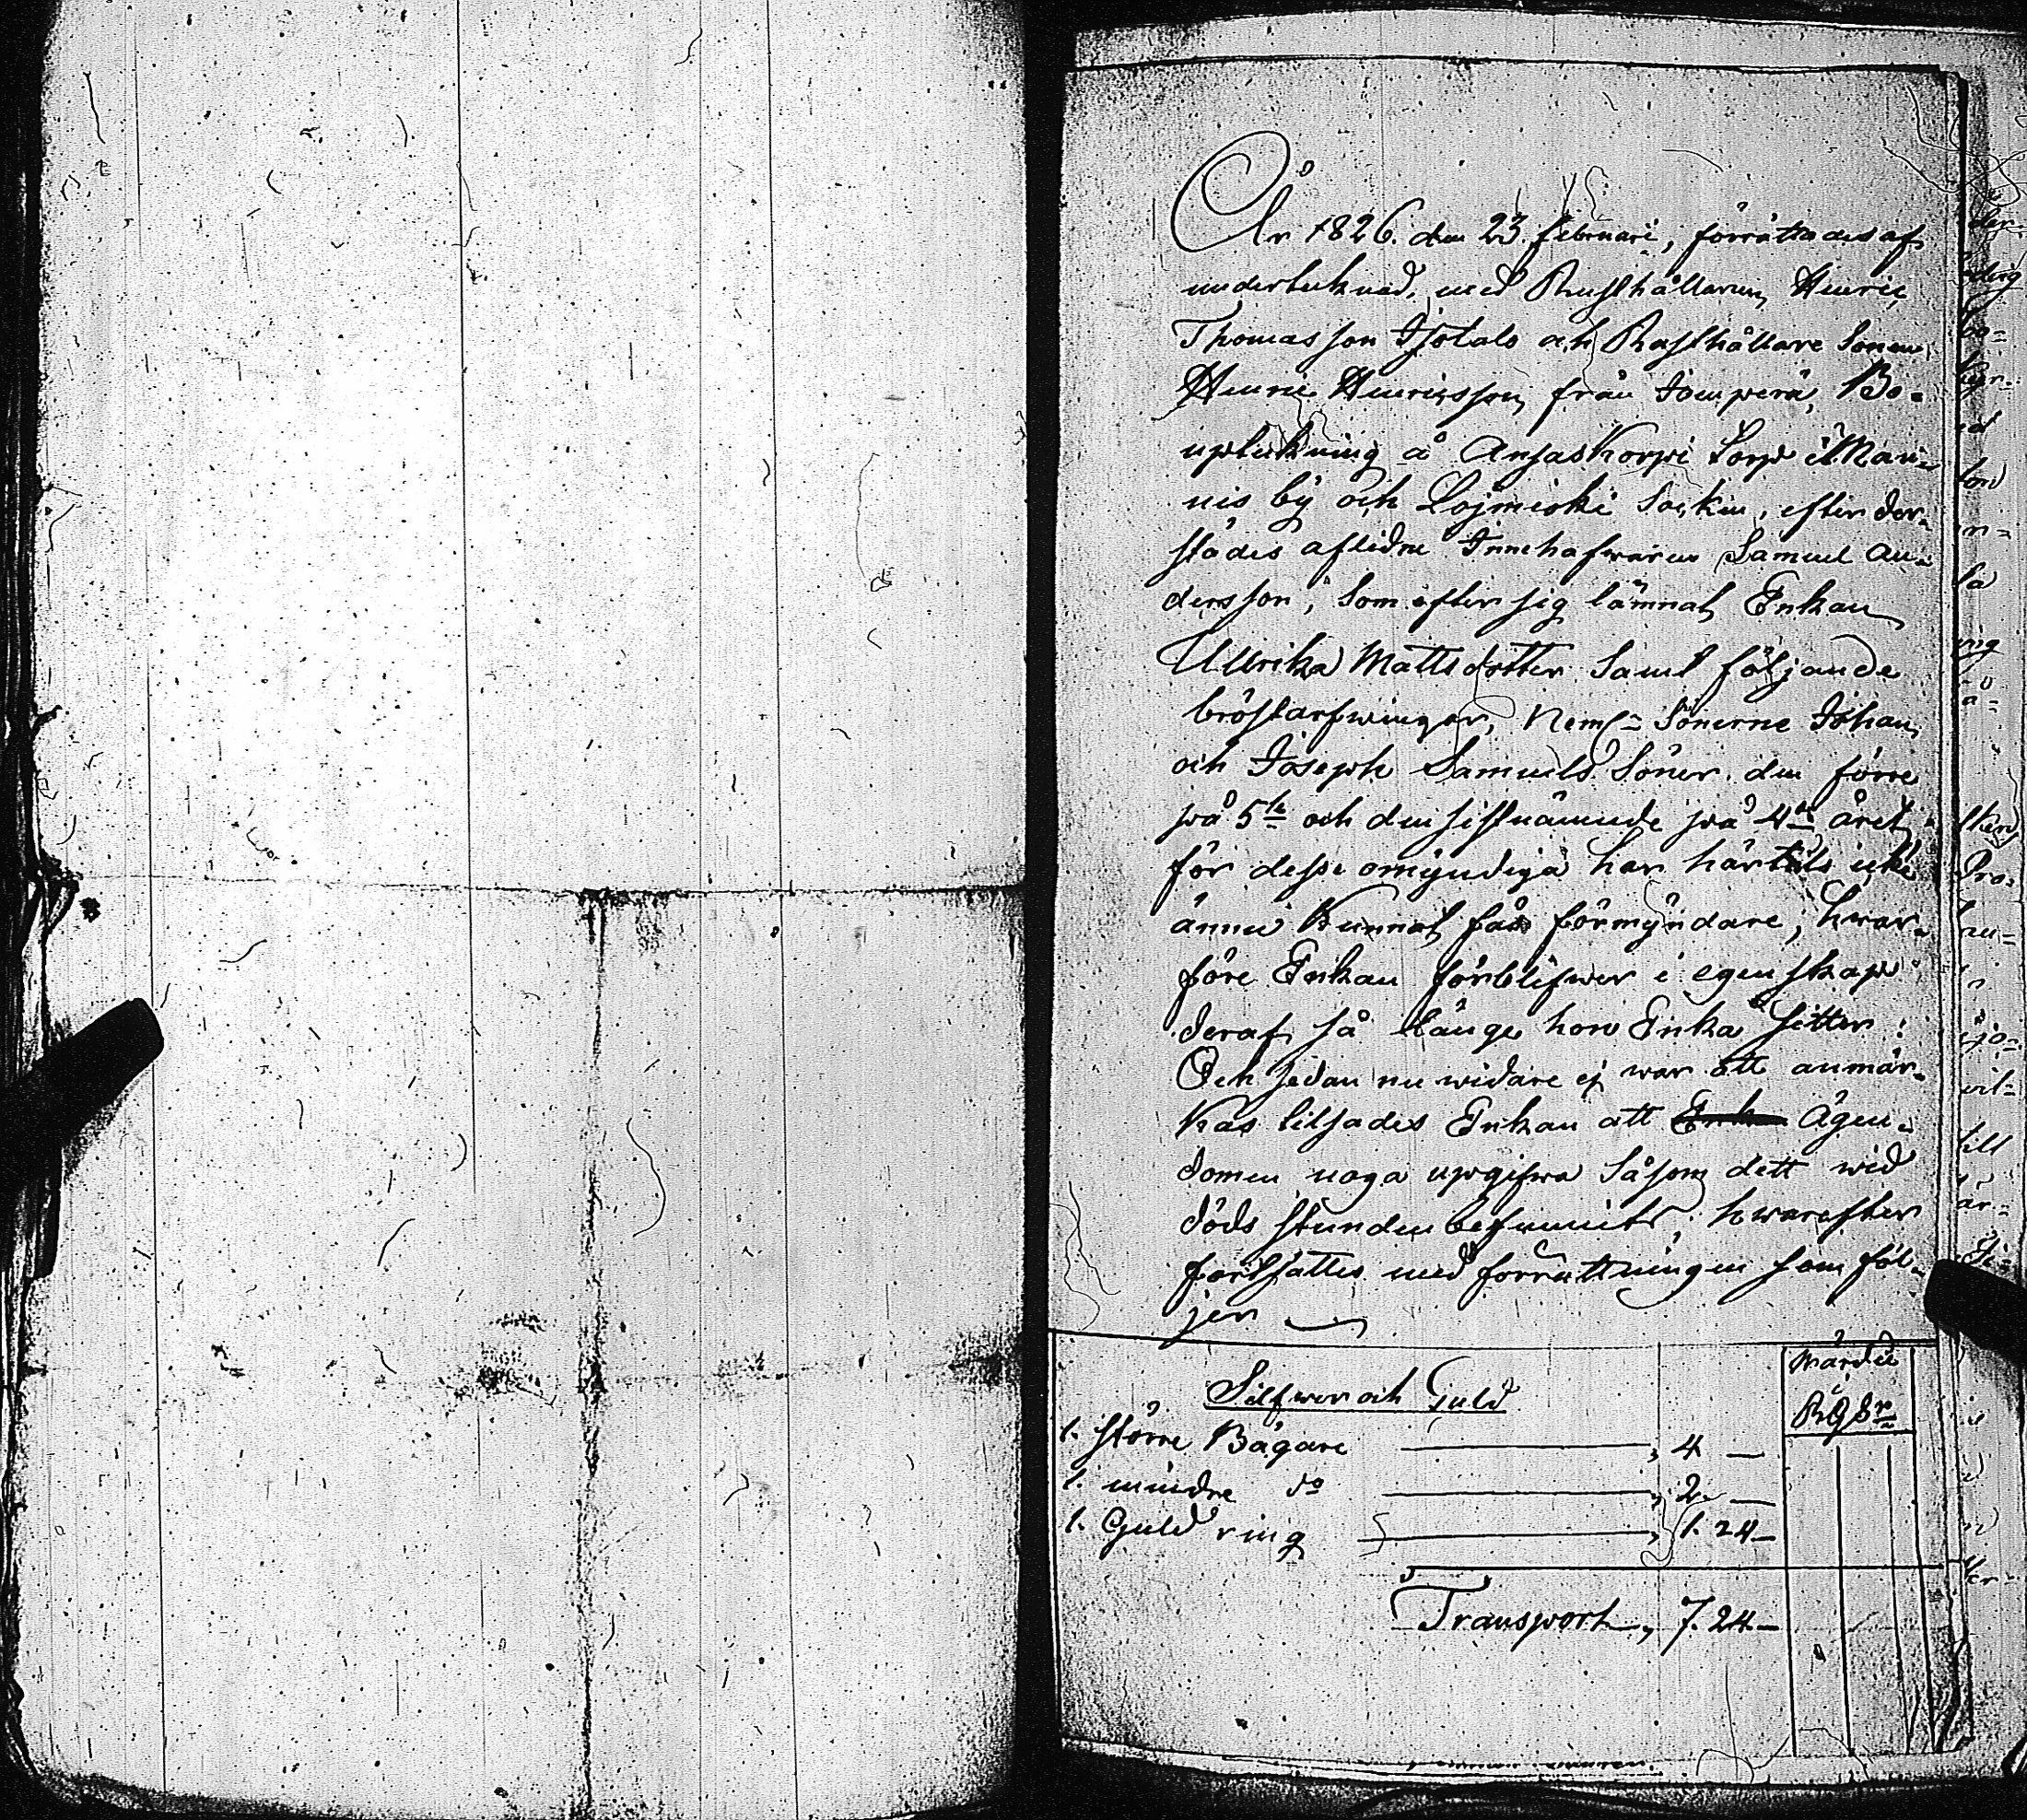 År 1826. den 23. februari, förrättades af
underteknad, med Rusthållaren Henric
Thomasson Isotalo och Rusthållare Sonen
Henric Henricsson från Jompera, Bo-
upteckning å Ansaskorpi Torp i Man-
nis by och Lojmioki Socken, efter der-
städes aflidne Innehafvaren Samuel An-
dersson, Som efter sig lämnat Enkan
Ullrika Mattsdotter Samt följande
bröstarfwingar, Neml: Sönerne Johan
och Joseph Samuels Söner. den förre
på 5te och den sistnämnde på 4de året
för desse omyndiga har härtils icke
ännu Kunnat fås förmyndare, hwar-
före Enkan förblifwer i egenskap
deraf så länge hon Enka sitter:
Och sedan nu widare ej war att anmär-
kas tilsades Enkan att Ägen-
domen noga upgifwa Såsom dett wid
döds stunden befunnits; hwarefter
fortsattes med förrättningen som föl-
jer
Wärde
Silfwer och Guld
RG Sr
1. större Bägare , 4 —
1. mindre do , 2. —
1. Guld ring , 1. 24 —
Transport , 7. 24 —